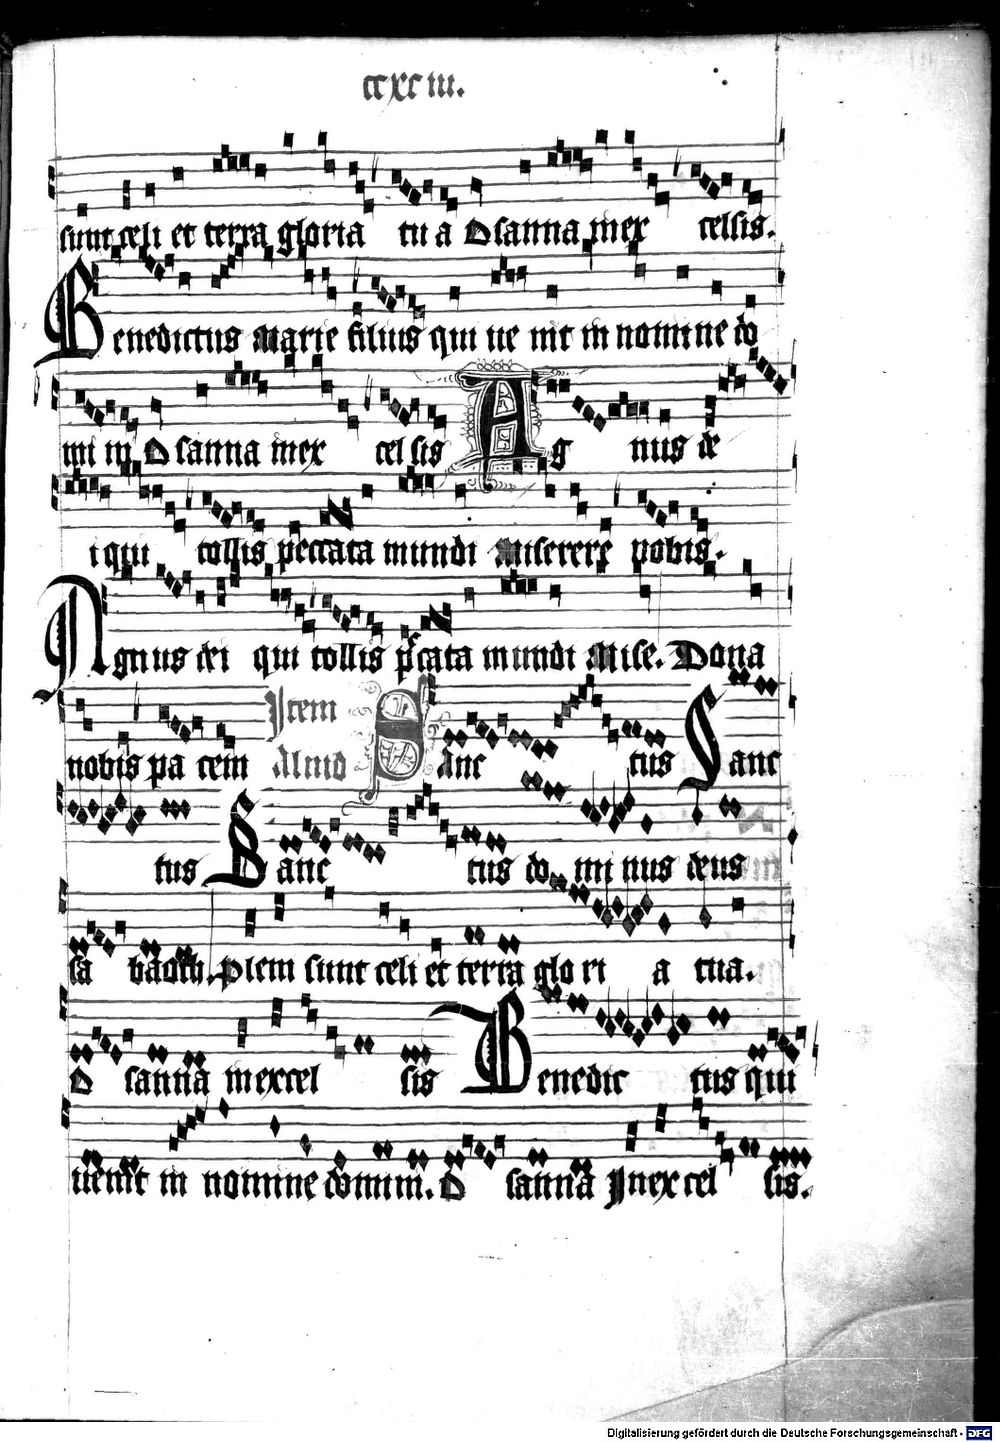 ccxciii.
sunt celi et terra gloria tu a Osanna inex celsis.
Benedictus Marie filius qui ue nit in nomine do
mi ni O sanna inex cel sis Ag nus de
i qui tollis peccata mundi Miserere nobis.
Agnus dei qui tollis pccata mundi Mise. Dona
nobis pa cem Item Aliud Sanc tus Sanc
tus Sanc tus do mi nus deus
sa baoth. Pleni sunt celi et terra glo ri a tua.
O sanna inexcel sis Benedic tus qui
uenit in nomine domini. O sanna Inex cel sis.
Digitalisierung gefördert durch die Deutsche Forschungsgemeinschaft - DFG